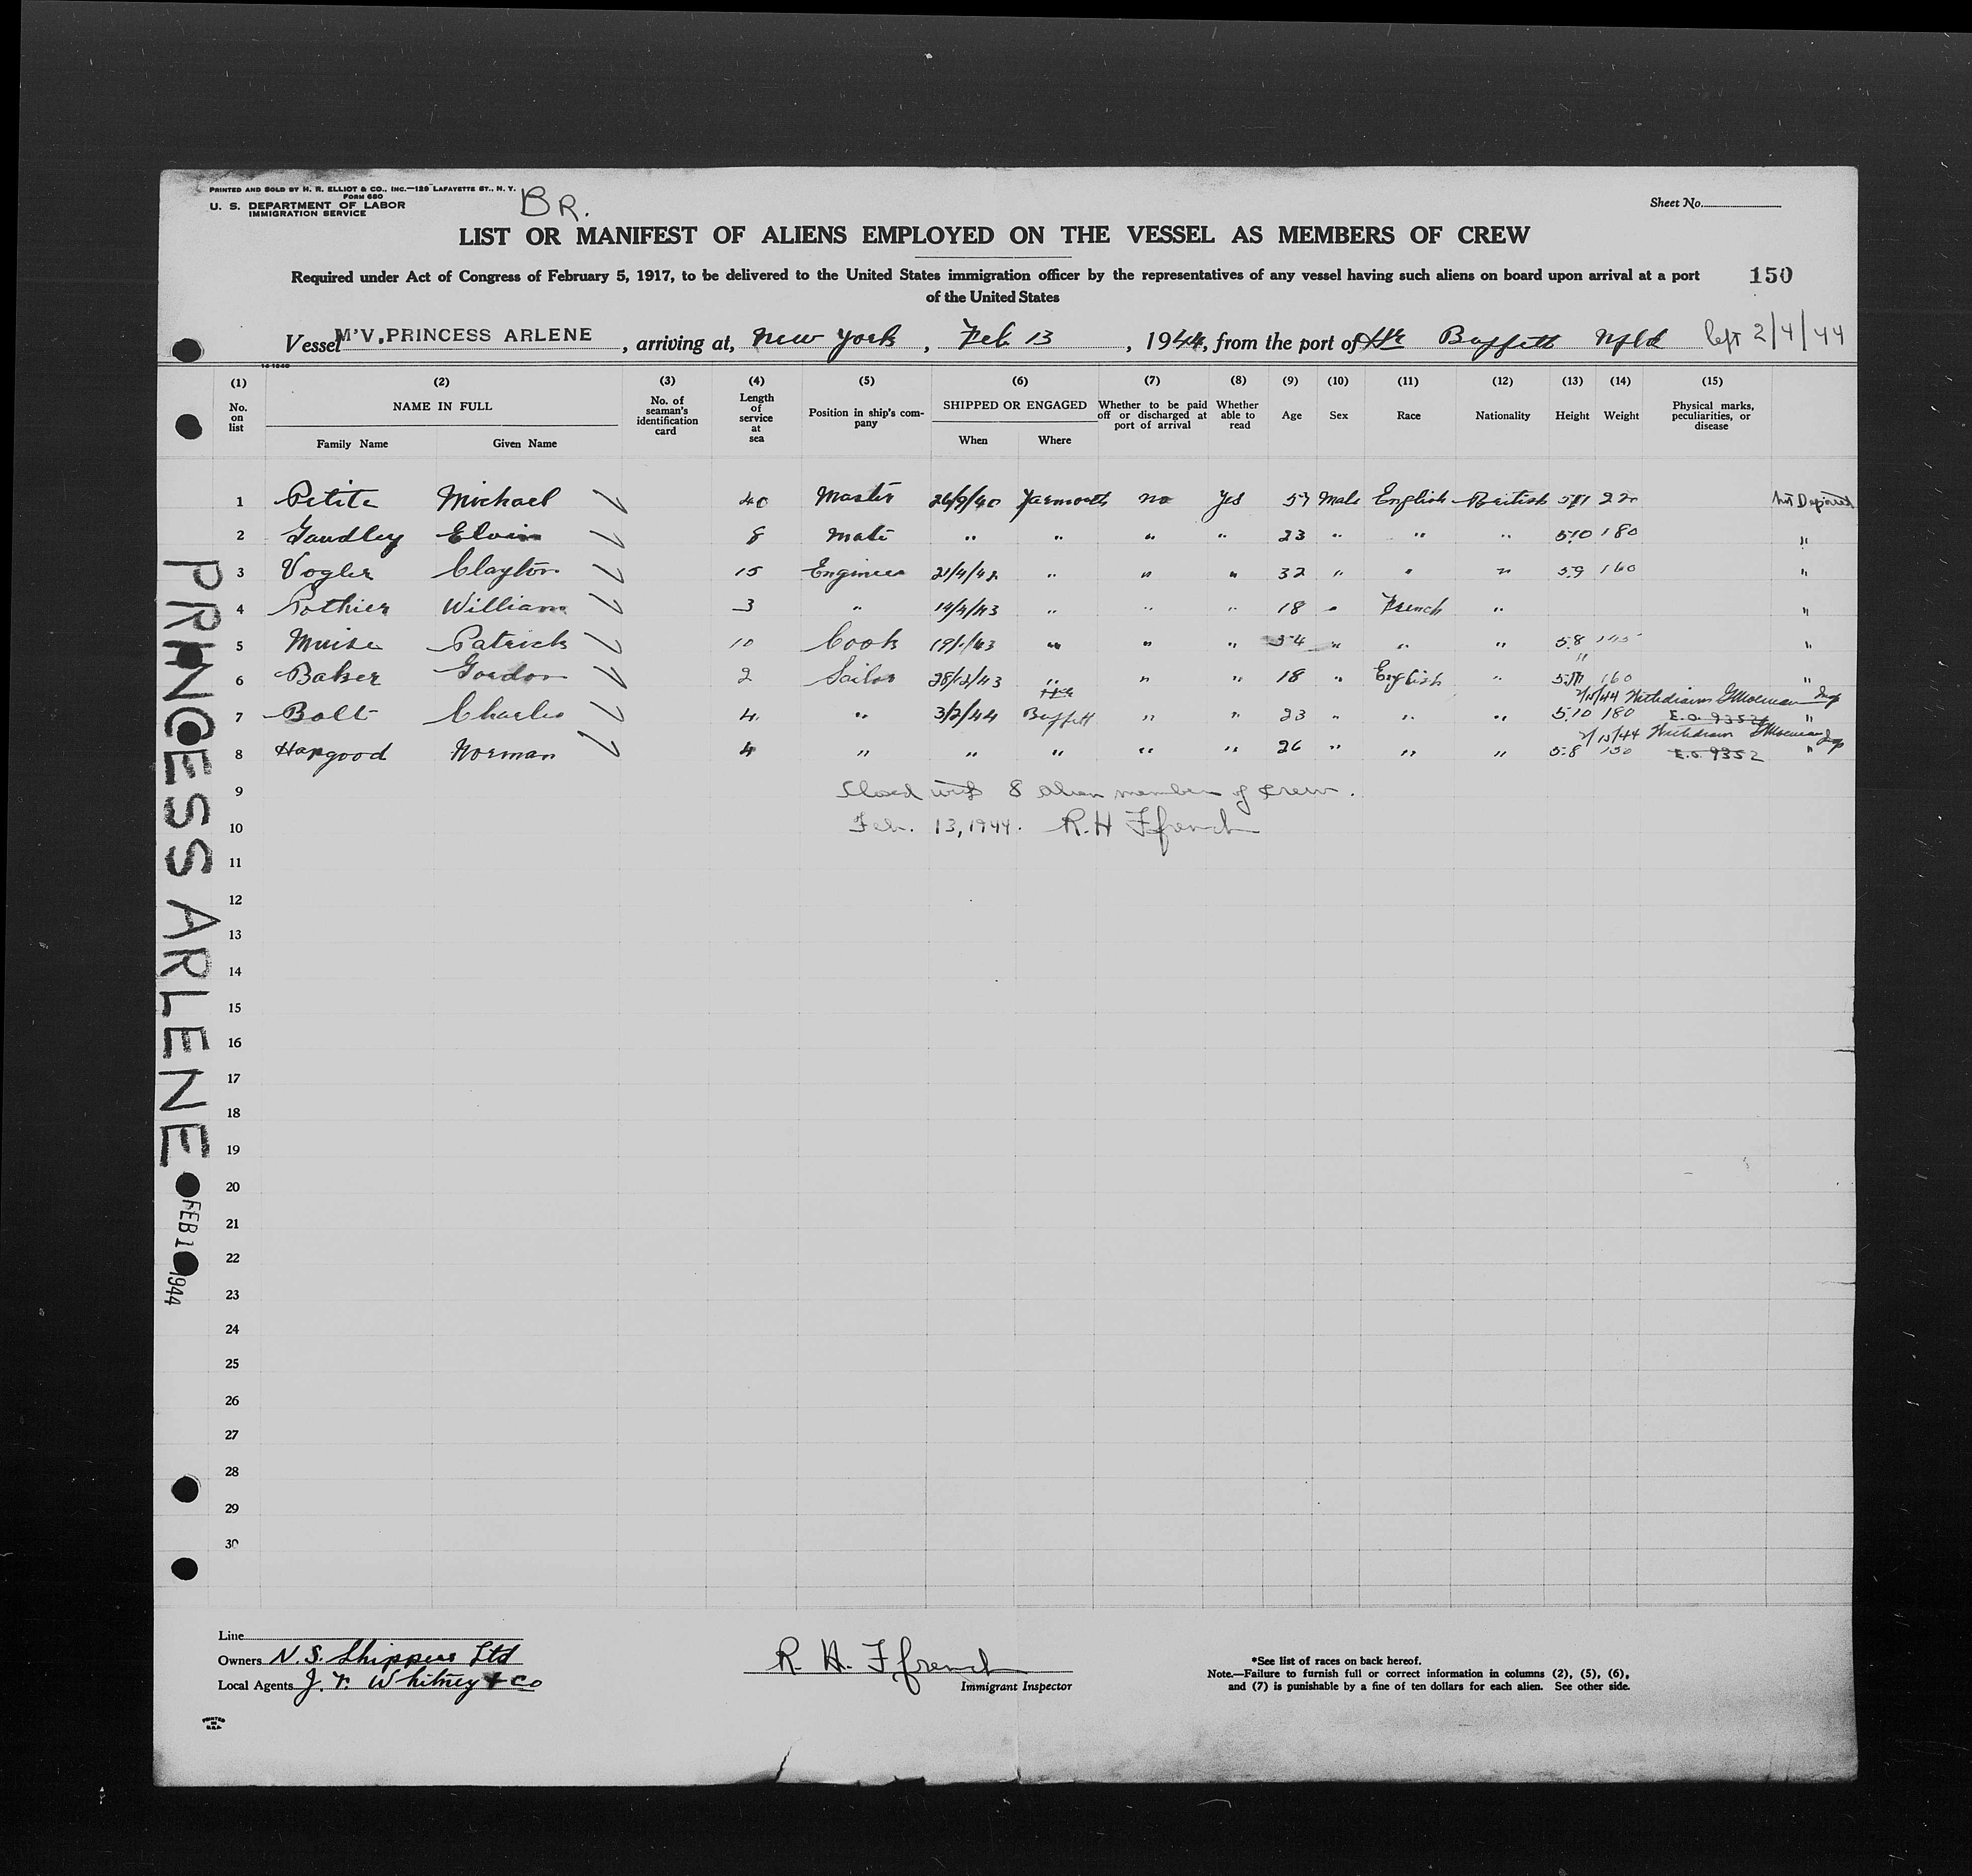 PRINTED AND SOLD BY H. R. ELLIOT & CO., INC.—129 LAFAYETTE ST., N. Y.
FORM 680
U. S. DEPARTMENT OF LABOR
IMMIGRATION SERVICE
BR.
Sheet No.
LIST OR MANIFEST OF ALIENS EMPLOYED ON THE VESSEL AS MEMBERS OF CREW
Required under Act of Congress of February 5, 1917, to be delivered to the United States immigration officer by the representatives of any vessel having such aliens on board upon arrival at a port
of the United States
150
Vessel M'V. PRINCESS ARLENE, arriving at, New York, Feb 13, 1944, from the port of Hr Buffett Nfld left 2/4/44
(1) (2) (3) (4) (5) (6) (7) (8) (9) (10) (11) (12) (13) (14) (15)
No. on list NAME IN FULL Family Name Given Name No. of seaman's identification card Length of service at sea Position in ship's company SHIPPED OR ENGAGED When Where Whether to be paid off or discharged at port of arrival Whether able to read Age Sex Race Nationality Height Weight Physical marks, peculiarities, or disease
1 Petite Michael 40 Master 26/9/40 Yarmouth no Yes 57 Male English British 5'11 220 Not Deported
2 Gaudley Elvin 8 Mate " " " " 23 " " " 5'10 180 "
3 Vogler Clayton 15 Engineer 21/4/42 " " " 32 " " " 5'9 160 "
4 Pothier William 3 " 19/4/43 " " " 18 " French " "
5 Muise Patrick 10 Cook 19/1/43 " " " 54 " " " 5.8 145 "
6 Baker Gordon 2 Sailor 28/12/43 " " " 18 " English " 5'11 160 "
2/15/44 Withdrawn Insp
7 Bolt Charles 4 " 3/2/44 Hr Buffett " " 23 " " " 5.10 180 E.O. 9352 "
2/15/44 Withdrawn Insp
8 Hapgood Norman 4 " " " " " 26 " " " 5.8 150 E.O. 9352 "
9 Closed with 8 alien members of crew.
10 Feb. 13, 1944. R.H Ffrench
11
12
13
14
15
16
17
18
19
20
21
22
23
24
25
26
27
28
29
30
PRINCESS ARLENE
FEB 1 1944
Line
Owners N. S. Shippers Ltd
Local Agents J. F. Whitney & Co
R. H. Ffrench
Immigrant Inspector
*See list of races on back hereof.
Note.—Failure to furnish full or correct information in columns (2), (5), (6),
and (7) is punishable by a fine of ten dollars for each alien. See other side.
PRINTED
IN
U.S.A.